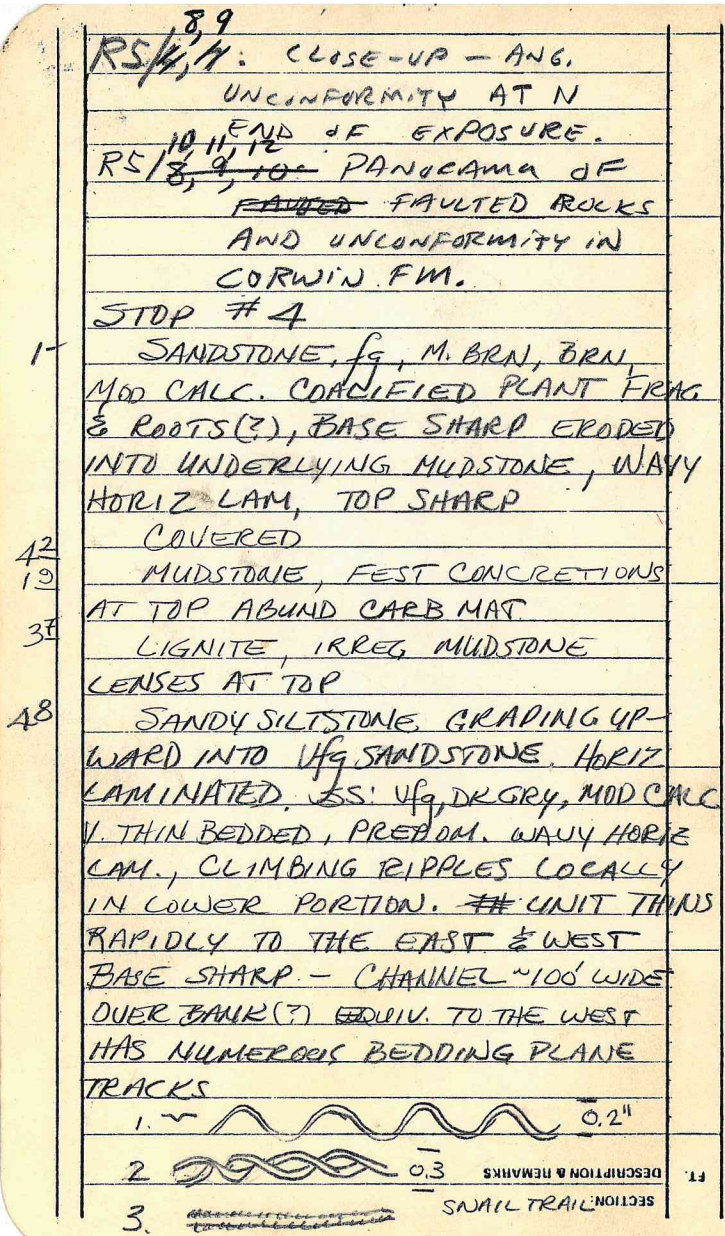 8, 9
R5/4, 4: CLOSE-UP - ANG.
UNCONFORMITY AT N
END OF EXPOSURE.
10, 11, 12
R5/8, 9, 10 PANORAMA OF
FAULTED FAULTED ROCKS
AND UNCONFORMITY IN
CORWIN FM.
STOP #4
1- SANDSTONE, fg, M. BRN, BRN,
MOD CALC. COALIFIED PLANT FRAG
& ROOTS(?), BASE SHARP ERODED
INTO UNDERLYING MUDSTONE, WAVY
HORIZ LAM, TOP SHARP
42 COVERED
19 MUDSTONE, FEST CONCRETIONS
AT TOP ABUND CARB MAT.
37 LIGNITE, IRREG MUDSTONE
LENSES AT TOP
48 SANDY SILTSTONE GRADING UP-
WARD INTO Vfg SANDSTONE. HORIZ
LAMINATED. SS: Vfg, DK GRY, MOD CALC
V. THIN BEDDED, PREDOM. WAVY HORIZ
LAM., CLIMBING RIPPLES LOCALLY
IN LOWER PORTION. UNIT THINS
RAPIDLY TO THE EAST & WEST
BASE SHARP - CHANNEL ~100' WIDE
OVER BANK(?) EQUIV. TO THE WEST
HAS NUMEROUS BEDDING PLANE
TRACKS
1. 0.2"
2 0.3
DESCRIPTION & REMARKS FT.
3. SNAIL TRAIL SECTION: